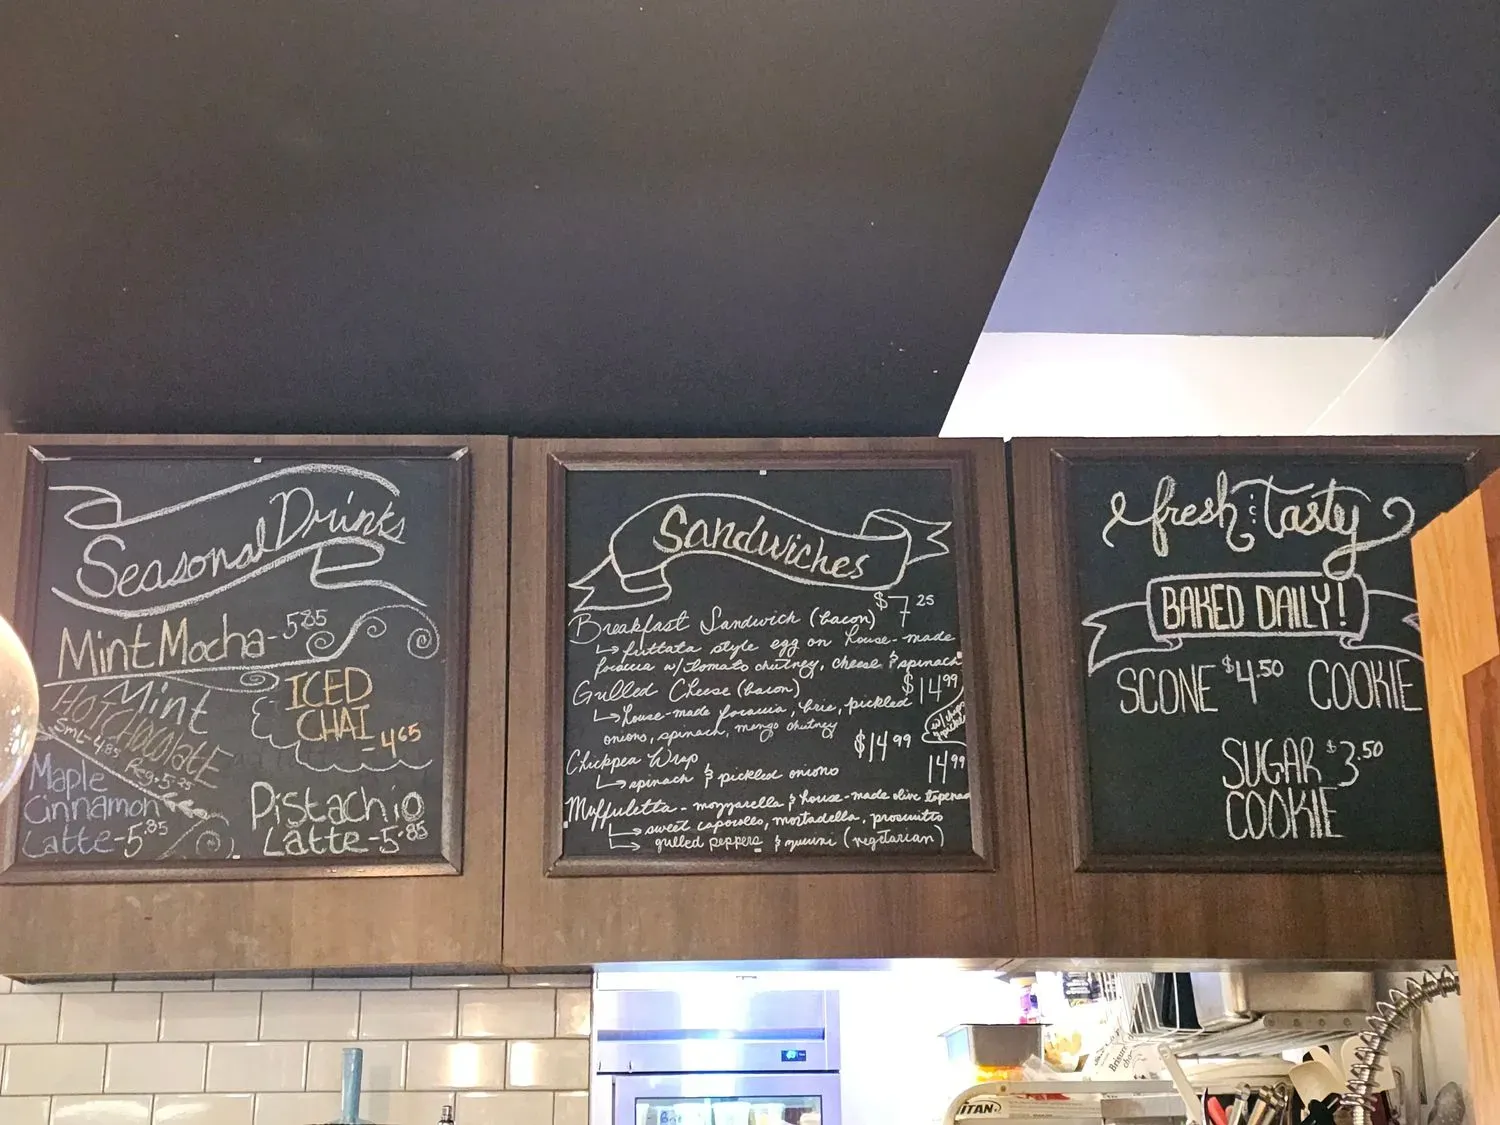 Seasonal Drinks
Mint Mocha - 5.85
Mint
HOT CHOCOLATE
Sml - 4.85
Reg - 5.25
ICED
CHAI
- 4.65
Maple
Cinnamon
Latte - 5.85
Pistachio
Latte - 5.85
Sandwiches
Breakfast Sandwich (bacon) $7.25
↳ frittata style egg on house-made
focaccia w/ tomato chutney, cheese & spinach
Grilled Cheese (bacon) $14.99
↳ house-made focaccia, brie, pickled
onions, spinach, mango chutney
w/ chips
Chickpea Wrap $14.99
↳ spinach & pickled onions
14.99
Muffuletta - mozzarella & house-made olive tapenade
↳ sweet capocollo, mortadella, prosciutto
↳ grilled peppers & zucchini (vegetarian)
fresh & tasty
BAKED DAILY!
SCONE $4.50 COOKIE
SUGAR $3.50
COOKIE
TITAN